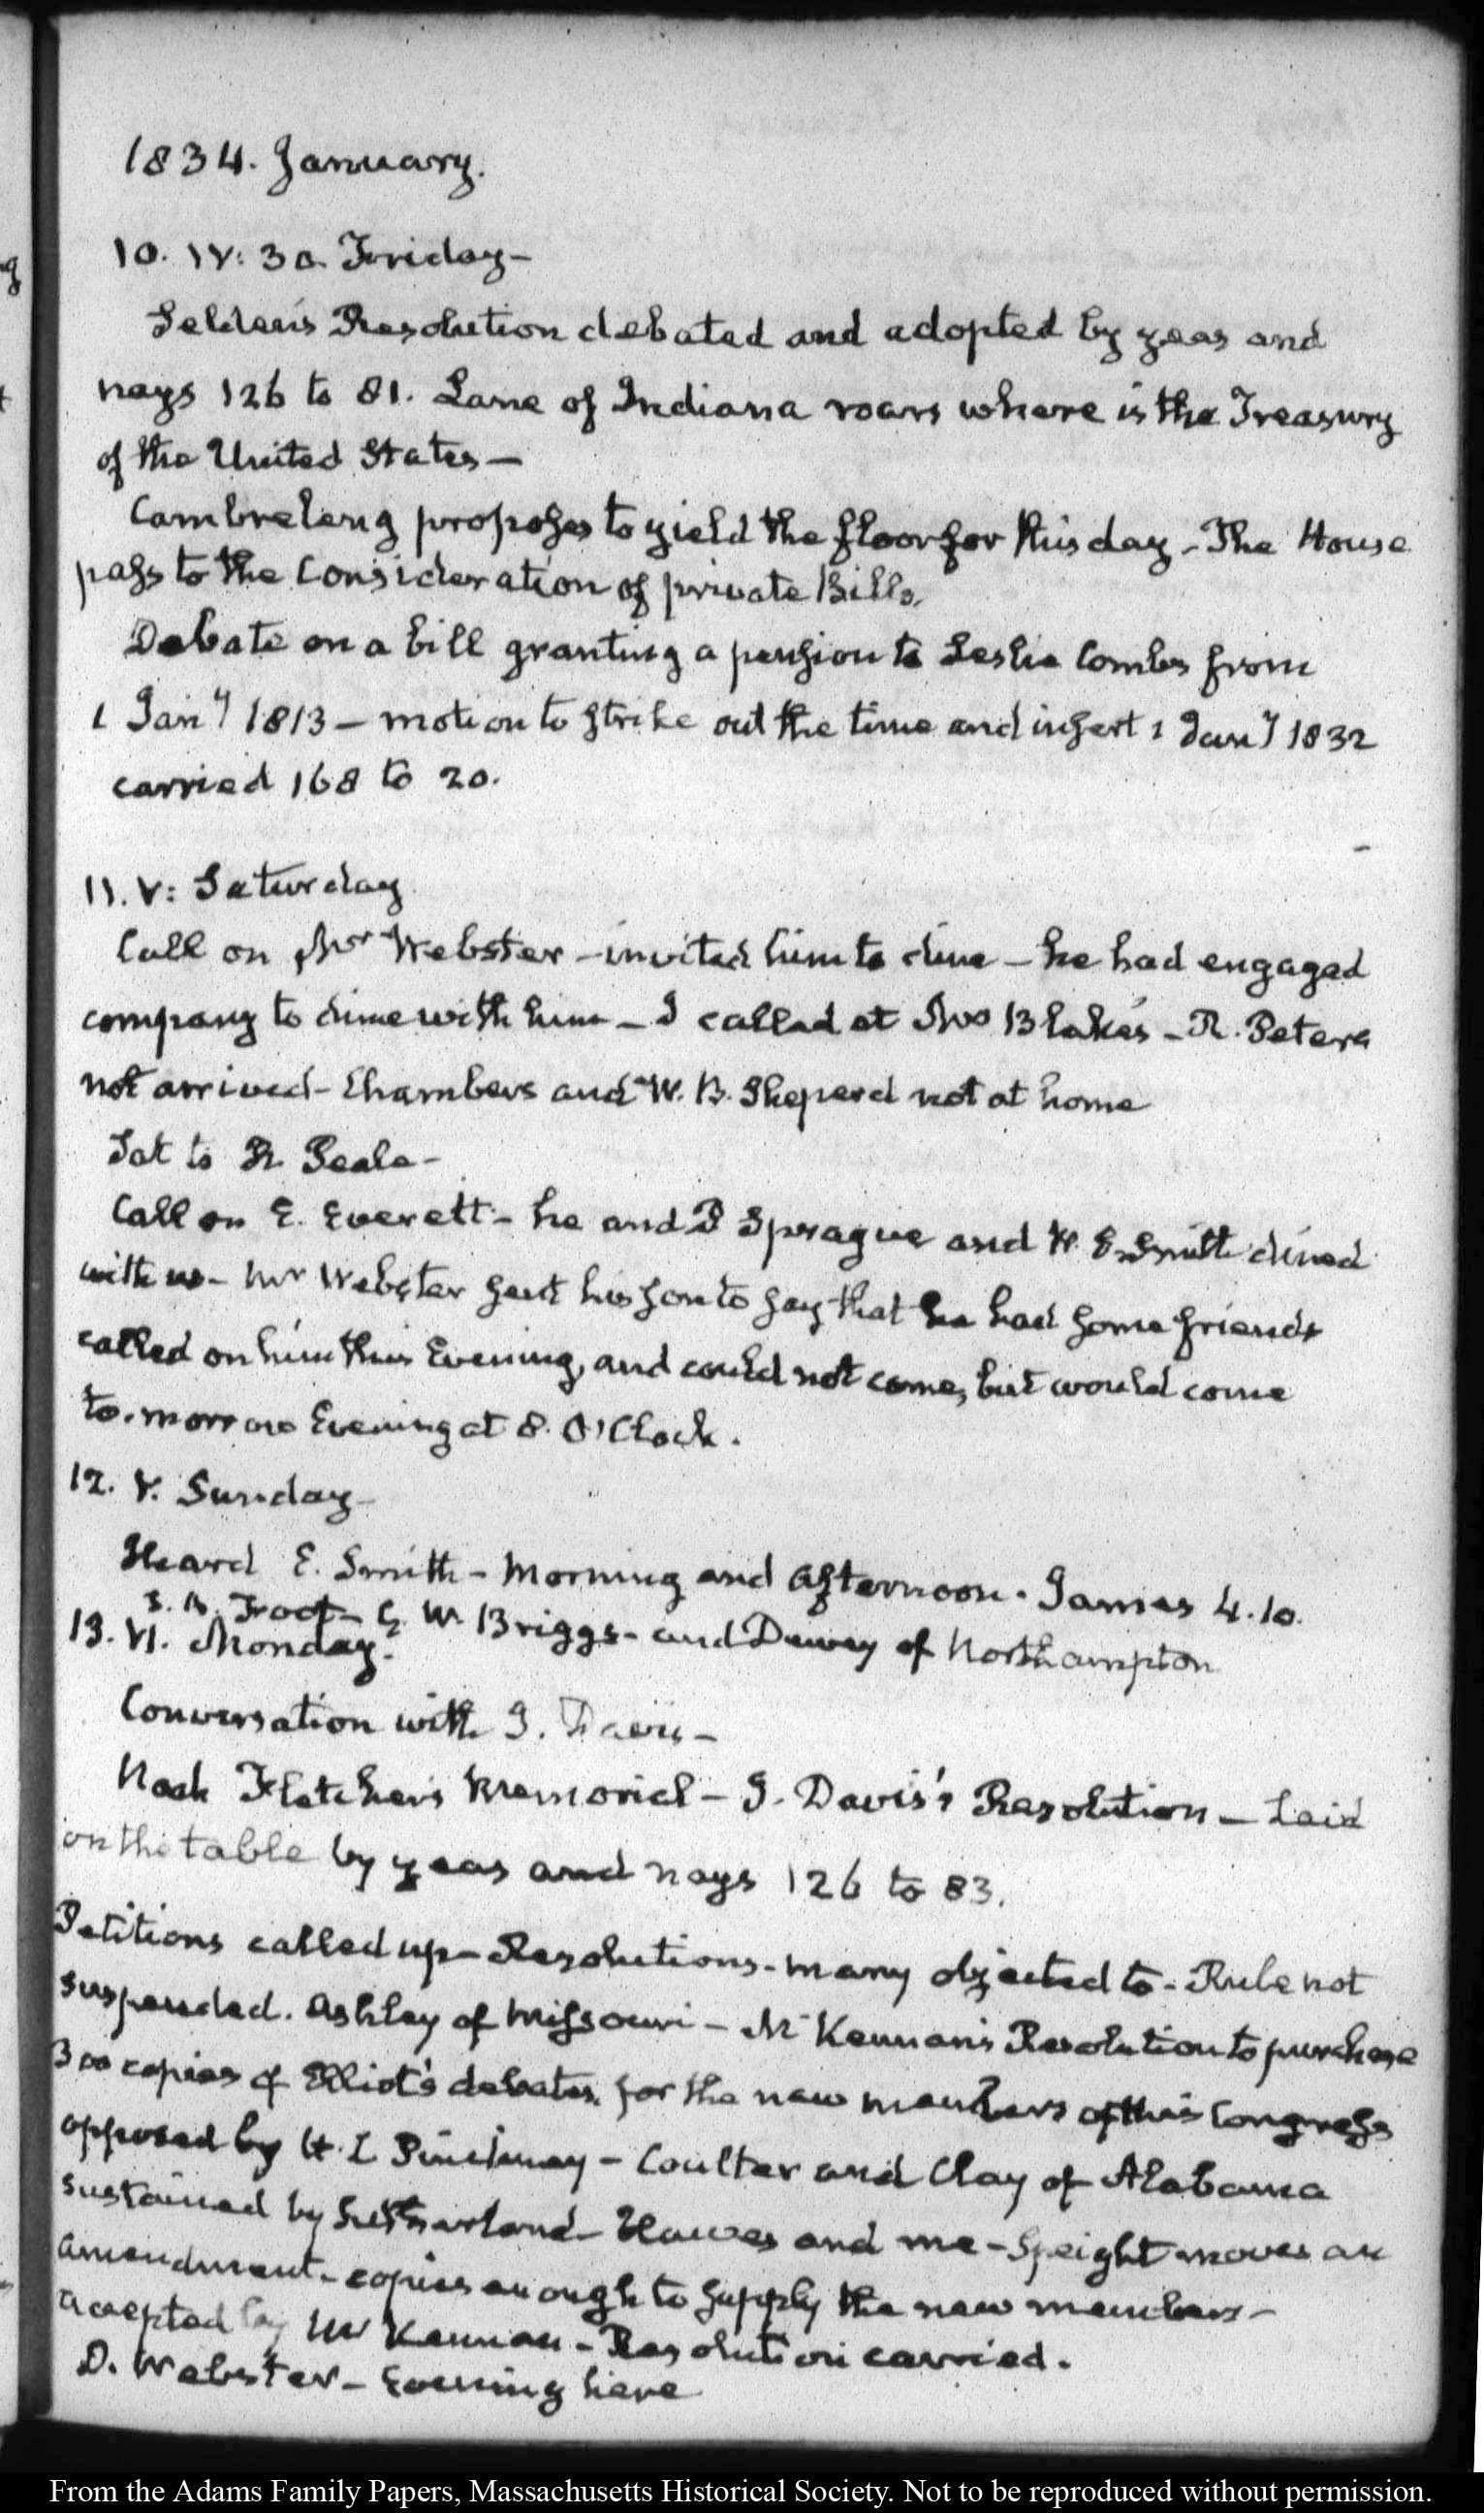 1834. January.
10. IV: 30. Friday—
Selden's Resolution debated and adopted by yeas and
nays 126 to 81. Lane of Indiana roars where is the Treasury
of the United States—
Cambreleng proposes to yield the floor for this day - The House
pass to the Consideration of private Bills.
Debate on a bill granting a pension to Leslie Combs from
1 Jany 1813 — motion to strike out the time and insert 1 Jany 1832
carried 168 to 20.
11. V: Saturday
Call on Mr Webster - invited him to dine — he had engaged
company to dine with him — I called at Mrs Blake's - R. Peters
not arrived - Chambers and W. B. Sheperd not at home
Sat to Peale -
Call on E. Everett - he and P Sprague and Smith dined
with us - Mr Webster sent his son to say that he had some friends
called on him this Evening, and could not come, but would come
to-morrow Evening at 8. O'Clock.
12. V. Sunday-
Heard E. Smith - Morning and Afternoon. James 4.10.
Foot - G W Briggs - and Dewey of Northampton
13. VI. Monday.
Conversation with J. Davis -
Noah Fletcher's Memorial - J. Davis's Resolution — Laid
on the table by yeas and nays 126 to 83.
Petitions called up - Resolutions - many objected to - Rule not
suspended. Ashley of Missouri - McKennan's Resolution to purchase
300 copies of Elliot's debates, for the new members of this Congress
opposed by H. L Pinckney - Coulter and Clay of Alabama
sustained by Sutherland - Hawes and me - Speight moves an
amendment - copies enough to supply the new members -
accepted by McKennan - Resolution carried.
D. Webster - Evening here